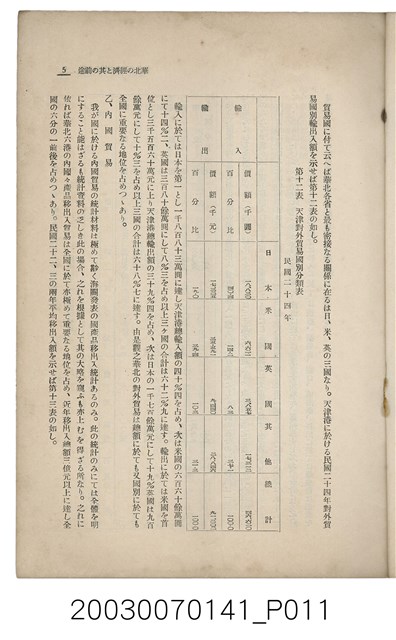 華北の經濟と其の前途 5
貿易國に付て云へば華北各省と最も密接なる關係に在るは日、米、英の三國なり。天津港に於ける民國二十四年對外貿
易國別輸出入額を示せば第十二表の如し。
第十二表 天津對外貿易國別分類表
民國二十四年
日本 米國 英國 其他 總計
輸入 價額(千圓)
百分比
輸出 價額(千元)
百分比
輸入に於ては日本を第一とし一千八百八十三萬圓に達し天津港總輸入額の四十%四を占め、次は米國の六百六十餘萬圓
にて十四%二、英國は三百八十餘萬圓にして八%三を占め以上三ヶ國の合計は六十二%九に達す。輸出に於ては米國を首
位とし三千五百六十萬元に上り天津港總輸出額の三十九%四を占め、次は日本の一千七百餘萬元にして十九%英國は九百
餘萬元にして十%三を占め以上三國の合計は六十八%七に達す。由是觀之華北の對外貿易は總額に於ても又國別に於ても
全國に重要なる地位を占めつゝあり。
乙、內國貿易
我が國に於ける內國貿易の統計材料は極めて尠く海關發表の國產品移出入統計あるのみ。此の統計のみにては全體を明
にすること能はざるも統計資料の乏しき此の場合、之れを根據として其の大略を窺ふも亦止むを得ざる所なり。之れに
依れば華北六港の內國々產品移出入貿易は全國に於て亦極めて重要なる地位を占め、近年移出入總額三億元以上に達し全
國の六分の一前後を占めつゝあり。民國二十二、三の兩年平均移出入額を示せば第十三表の如し。
20030070141_P011